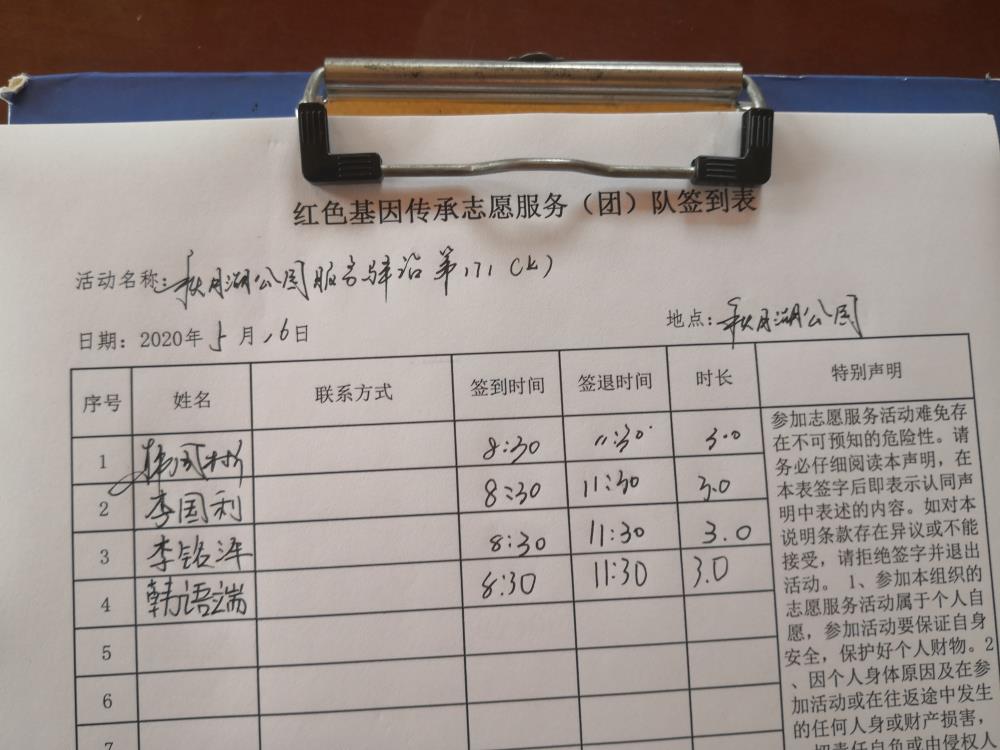 红色基因传承志愿服务（团）队签到表
活动名称：秋月湖公园服务驿站第171（上）
日期：2020年5月16日 地点：秋月湖公园
序号 姓名 联系方式 签到时间 签退时间 时长 特别声明
1 8:30 11:30 3.0
2 李国利 8:30 11:30 3.0
3 李铭泽 8:30 11:30 3.0
4 韩语端 8:30 11:30 3.0
5
6
7
参加志愿服务活动难免存
在不可预知的危险性。请
务必仔细阅读本声明，在
本表签字后即表示认同声
明中表述的内容。如对本
说明条款存在异议或不能
接受，请拒绝签字并退出
活动。 1、参加本组织的
志愿服务活动属于个人自
愿，参加活动要保证自身
安全，保护好个人财物。2
、因个人身体原因及在参
加活动或在往返途中发生
的任何人身或财产损害，
一切责任自负或由侵权人